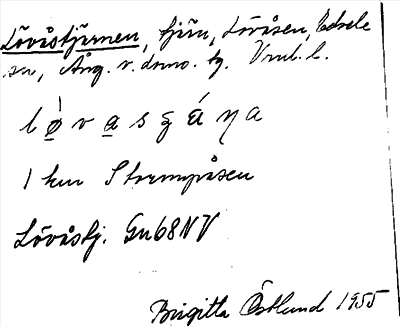 Lövåstjärnen, tjärn, Lövåsen, Edsele
sn, Ång. v. domo. tg. 
l ø̀ v a s ʒ á ŋ a
1 km Strempåsen
Lövåstj. Gu68NV
Birgitta Östlund 1955